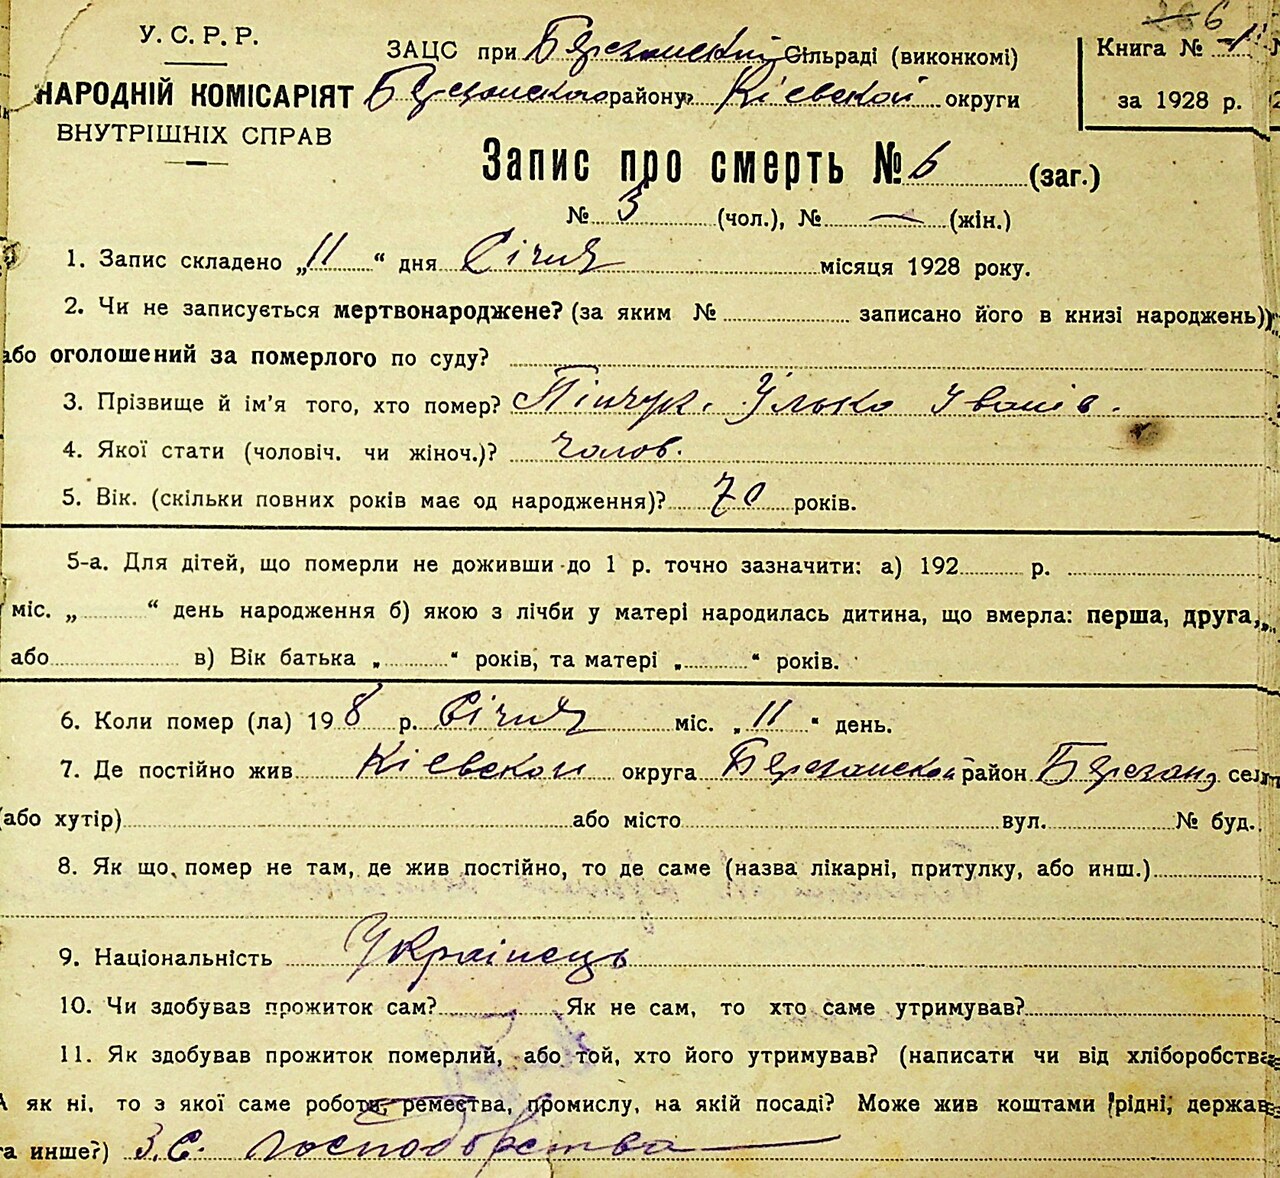 У. С. Р. Р.
НАРОДНІЙ КОМІСАРІЯТ
ВНУТРІШНІХ СПРАВ
ЗАЦС при Бярезанский Сільраді (виконкомі)
Бярезанского району Кіевской округи
Книга №
за 1928 р.
Запис про смерть № 6 (заг.)
№ 3 (чол.), № — (жін.)
1. Запис складено „11“ дня Січня місяця 1928 року.
2. Чи не записується мертвонароджене? (за яким № записано його в книзі народжень)
або оголошений за померлого по суду?
3. Прізвище й ім'я того, хто помер? Пінчук. Ілько Іванів.
4. Якої стати (чоловіч. чи жіноч.)? чолов.
5. Вік. (скільки повних років має од народження)? 70 років.
5-а. Для дітей, що померли не доживши до 1 р. точно зазначити: а) 192 р.
міс. „ “ день народження б) якою з лічби у матері народилась дитина, що вмерла: перша, друга,
або в) Вік батька „ “ років, та матері „ “ років.
6. Коли помер (ла) 19 8 р. Січня міс. „11“ день.
7. Де постійно жив Кіевской округа Бярезанской район Бярезань сел
(або хутір) або місто вул. № буд.
8. Як що, помер не там, де жив постійно, то де саме (назва лікарні, притулку, або инш.)
9. Національність Украінець
10. Чи здобував прожиток сам? Як не сам, то хто саме утримував?
11. Як здобував прожиток померлий, або той, хто його утримував? (написати чи від хліборобства
А як ні, то з якої саме роботи, ремества, промислу, на якій посаді? Може жив коштами рідні, держав
та инше?) З. С. господорства